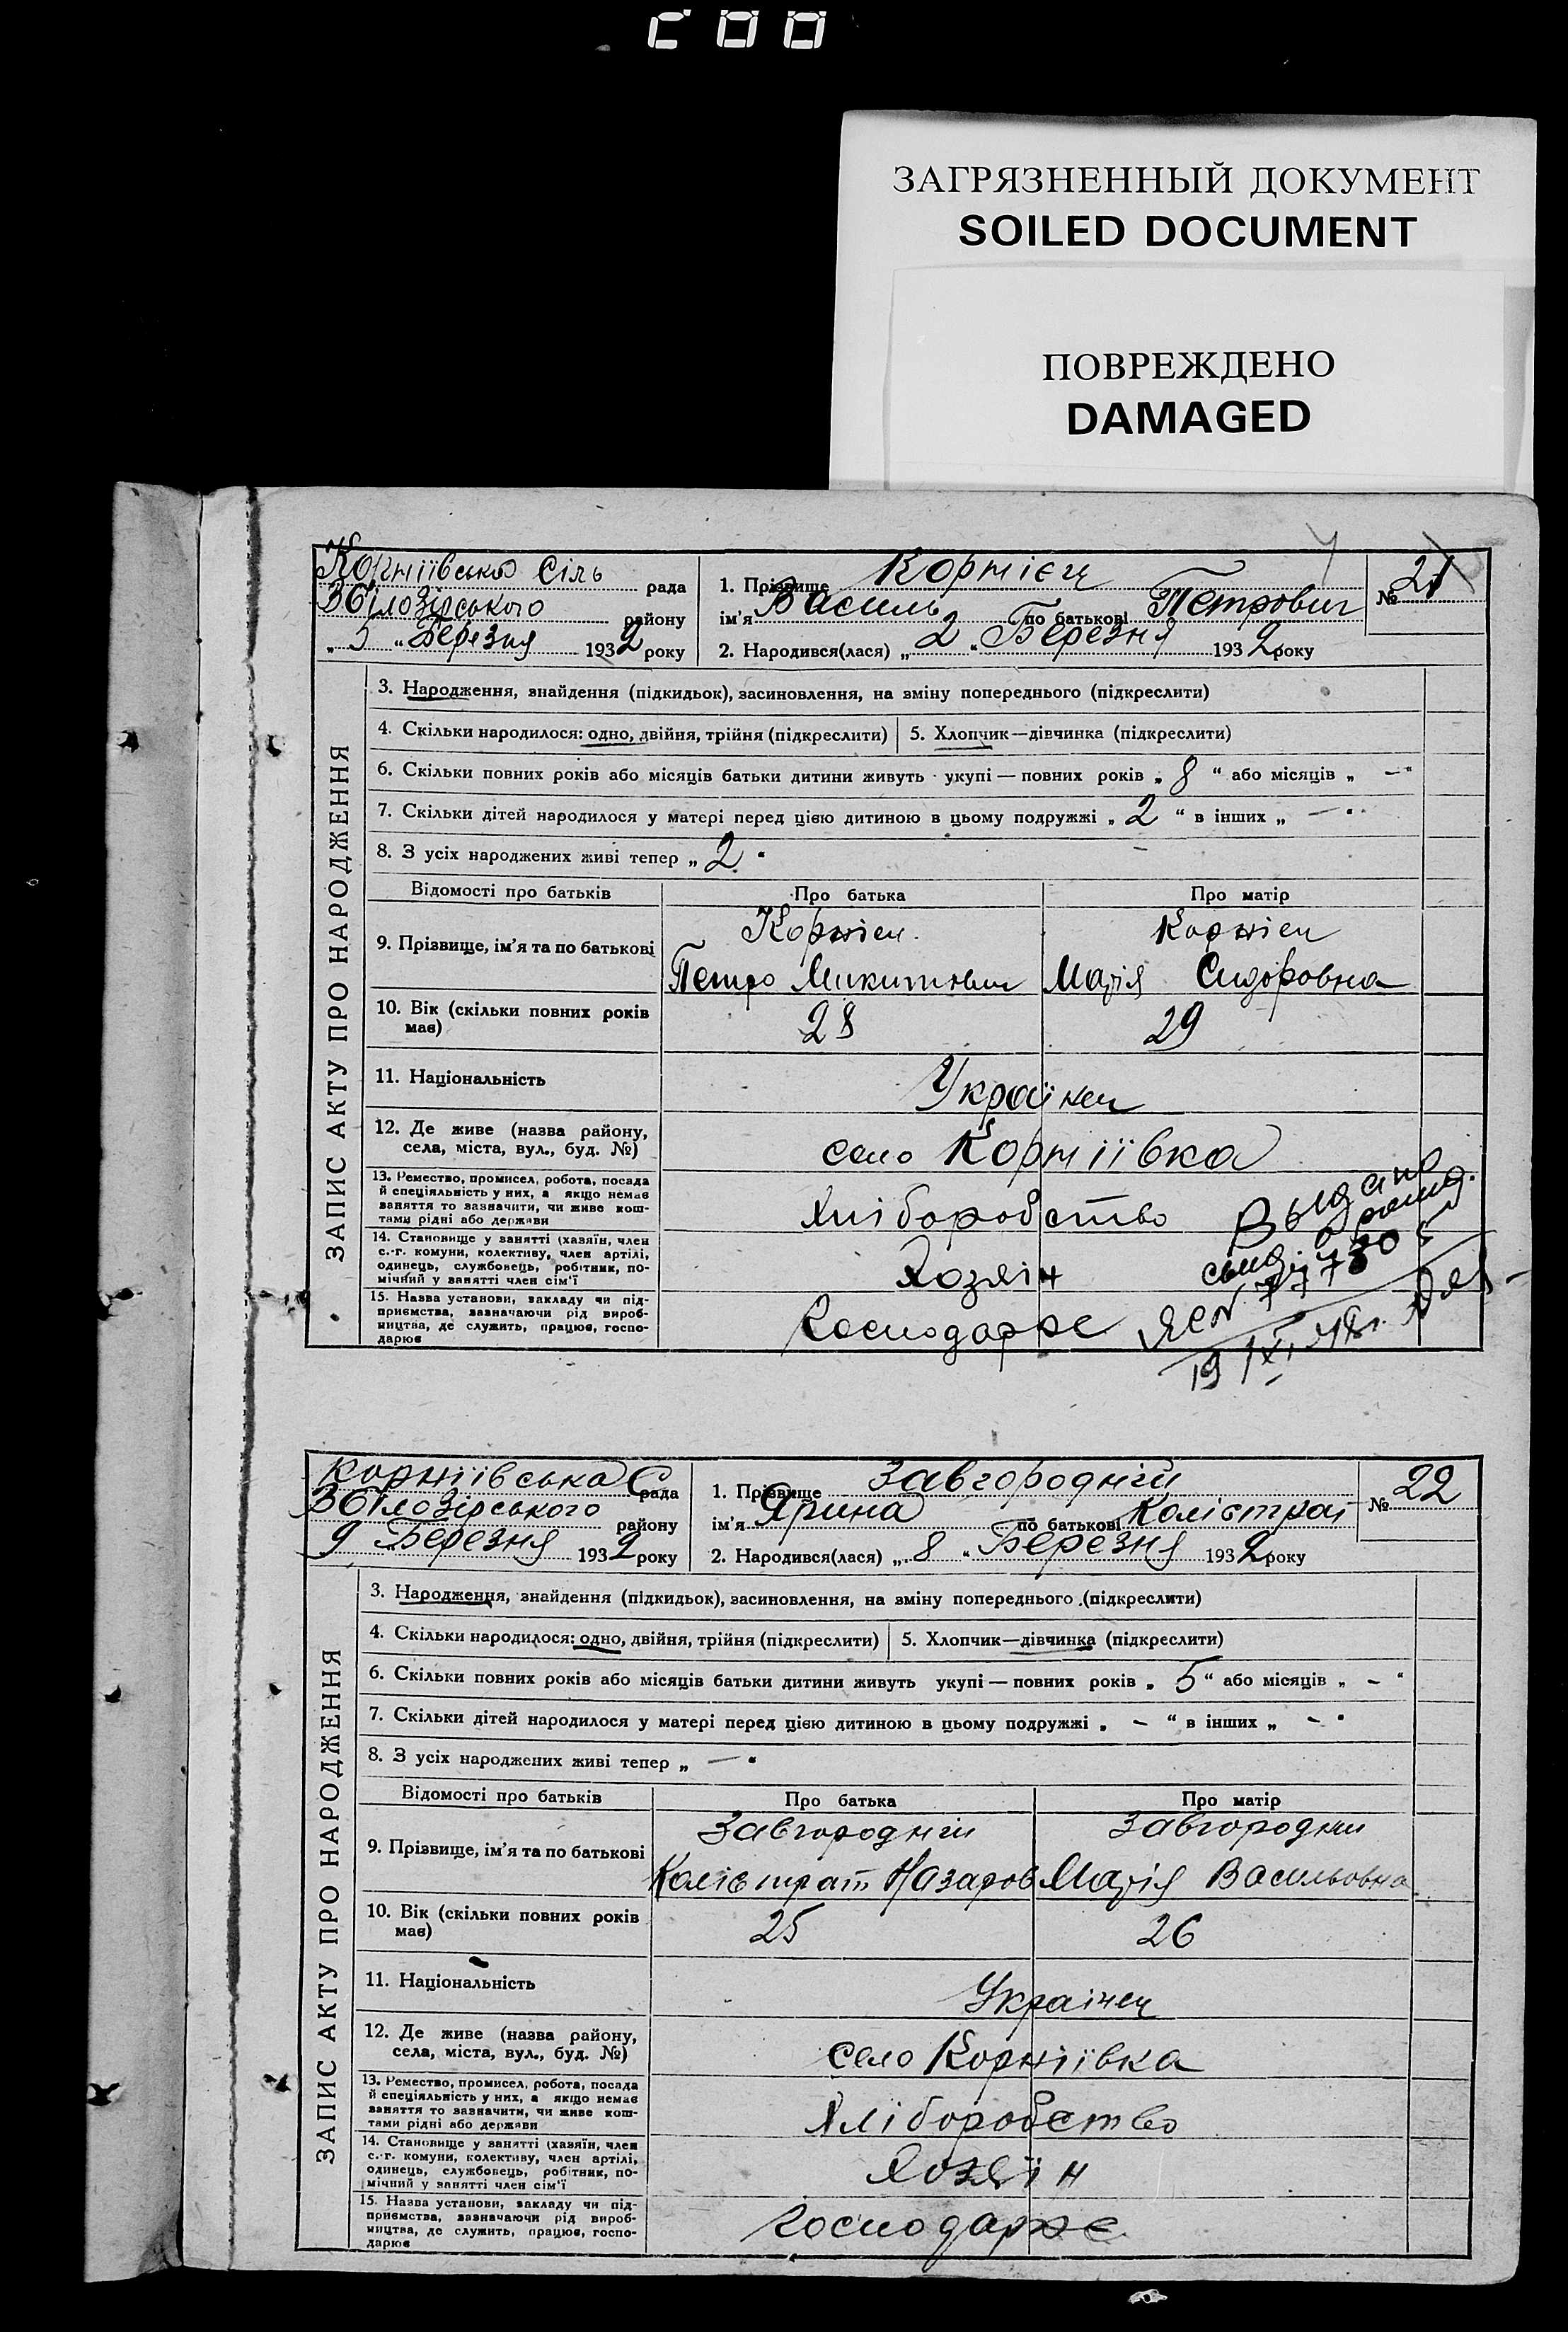 ЗАГРЯЗНЕННЫЙ ДОКУМЕНТ
SOILED DOCUMENT
ПОВРЕЖДЕНО
DAMAGED
Корніївська Сіль рада
Збілозірського району
„ 5 “ Березня 1932 року
1. Прізвище Корнієц
ім’я Василь по батькові Петрович
2. Народився(лася) „ 2 “ Березня 1932 року
№ 21
ЗАПИС АКТУ ПРО НАРОДЖЕННЯ
3. Народження, знайдення (підкидьок), засиновлення, на зміну попереднього (підкреслити)
4. Скільки народилося: одно, двійня, трійня (підкреслити) 5. Хлопчик—дівчинка (підкреслити)
6. Скільки повних років або місяців батьки дитини живуть укупі — повних років „ 8 “ або місяців „ — “
7. Скільки дітей народилося у матері перед цією дитиною в цьому подружжі „ 2 “ в інших „ — “
8. З усіх народжених живі тепер „ 2 “
Відомості про батьків Про батька Про матір
9. Прізвище, ім’я та по батькові
Корнієц Корнієц
Петро Микитович Марія Сидоровна
10. Вік (скільки повних років має) 28 29
11. Національність Українец
12. Де живе (назва району,
села, міста, вул., буд. №) село Корніївка
13. Ремество, промисел, робота, посада
й спеціяльність у них, а якщо немає
заняття то зазначити, чи живе кош-
тами рідні або держави
Хліборобство
14. Становище у занятті (хазяїн, член
с.-г. комуни, колективу, член артілі,
одинець, службовець, робітник, по-
мічний у занятті член сім’ї
Хозяін
15. Назва установи, закладу чи під-
приємства, зазначаючи рід вироб-
ництва, де служить, працює, госпо-
дарює
Господарже
Выдано
19/XI 48г.
Корніївська С рада
Збілозірського району
9 Березня 1932 року
1. Прізвище Завгородній
ім’я Ярина по батькові Калістрат
2. Народився(лася) „ 8 “ Березня 1932 року
№ 22
ЗАПИС АКТУ ПРО НАРОДЖЕННЯ
3. Народження, знайдення (підкидьок), засиновлення, на зміну попереднього (підкреслити)
4. Скільки народилося: одно, двійня, трійня (підкреслити) 5. Хлопчик—дівчинка (підкреслити)
6. Скільки повних років або місяців батьки дитини живуть укупі — повних років „ 5 “ або місяців „ — “
7. Скільки дітей народилося у матері перед цією дитиною в цьому подружжі „ — “ в інших „ — “
8. З усіх народжених живі тепер „ — “
Відомості про батьків Про батька Про матір
9. Прізвище, ім’я та по батькові
Завгородній Завгородни
Калістрат Назаров Марія Васильовна
10. Вік (скільки повних років має) 25 26
11. Національність Українец
12. Де живе (назва району,
села, міста, вул., буд. №) село Корніївка
13. Ремество, промисел, робота, посада
й спеціяльність у них, а якщо немає
заняття то зазначити, чи живе кош-
тами рідні або держави
Хліборобство
14. Становище у занятті (хазяїн, член
с.-г. комуни, колективу, член артілі,
одинець, службовець, робітник, по-
мічний у занятті член сім’ї
Хозяїн
15. Назва установи, закладу чи під-
приємства, зазначаючи рід вироб-
ництва, де служить, працює, госпо-
дарює
Господарже